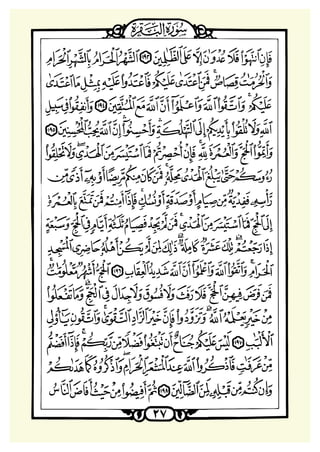 سُورَةُ البَقَرَةِ
فَإِنِ ٱنتَهَوْا۟ فَلَا عُدْوَٰنَ إِلَّا عَلَى ٱلظَّٰلِمِينَ ١٩٣ ٱلشَّهْرُ ٱلْحَرَامُ بِٱلشَّهْرِ ٱلْحَرَامِ
وَٱلْحُرُمَٰتُ قِصَاصٌ ۚ فَمَنِ ٱعْتَدَىٰ عَلَيْكُمْ فَٱعْتَدُوا۟ عَلَيْهِ بِمِثْلِ مَا ٱعْتَدَىٰ
عَلَيْكُمْ ۚ وَٱتَّقُوا۟ ٱللَّهَ وَٱعْلَمُوٓا۟ أَنَّ ٱللَّهَ مَعَ ٱلْمُتَّقِينَ ١٩٤ وَأَنفِقُوا۟ فِى سَبِيلِ
ٱللَّهِ وَلَا تُلْقُوا۟ بِأَيْدِيكُمْ إِلَى ٱلتَّهْلُكَةِ ۛ وَأَحْسِنُوٓا۟ ۛ إِنَّ ٱللَّهَ يُحِبُّ ٱلْمُحْسِنِينَ ١٩٥
وَأَتِمُّوا۟ ٱلْحَجَّ وَٱلْعُمْرَةَ لِلَّهِ ۚ فَإِنْ أُحْصِرْتُمْ فَمَا ٱسْتَيْسَرَ مِنَ ٱلْهَدْىِ ۖ وَلَا تَحْلِقُوا۟
رُءُوسَكُمْ حَتَّىٰ يَبْلُغَ ٱلْهَدْىُ مَحِلَّهُۥ ۚ فَمَن كَانَ مِنكُم مَّرِيضًا أَوْ بِهِۦٓ أَذًى مِّن
رَّأْسِهِۦ فَفِدْيَةٌ مِّن صِيَامٍ أَوْ صَدَقَةٍ أَوْ نُسُكٍ ۚ فَإِذَآ أَمِنتُمْ فَمَن تَمَتَّعَ بِٱلْعُمْرَةِ
إِلَى ٱلْحَجِّ فَمَا ٱسْتَيْسَرَ مِنَ ٱلْهَدْىِ ۚ فَمَن لَّمْ يَجِدْ فَصِيَامُ ثَلَٰثَةِ أَيَّامٍ فِى ٱلْحَجِّ وَسَبْعَةٍ
إِذَا رَجَعْتُمْ ۗ تِلْكَ عَشَرَةٌ كَامِلَةٌ ۗ ذَٰلِكَ لِمَن لَّمْ يَكُنْ أَهْلُهُۥ حَاضِرِى ٱلْمَسْجِدِ
ٱلْحَرَامِ ۚ وَٱتَّقُوا۟ ٱللَّهَ وَٱعْلَمُوٓا۟ أَنَّ ٱللَّهَ شَدِيدُ ٱلْعِقَابِ ١٩٦ ٱلْحَجُّ أَشْهُرٌ مَّعْلُومَٰتٌ ۚ
فَمَن فَرَضَ فِيهِنَّ ٱلْحَجَّ فَلَا رَفَثَ وَلَا فُسُوقَ وَلَا جِدَالَ فِى ٱلْحَجِّ ۗ وَمَا تَفْعَلُوا۟
مِنْ خَيْرٍ يَعْلَمْهُ ٱللَّهُ ۗ وَتَزَوَّدُوا۟ فَإِنَّ خَيْرَ ٱلزَّادِ ٱلتَّقْوَىٰ ۚ وَٱتَّقُونِ يَٰٓأُو۟لِى
ٱلْأَلْبَٰبِ ١٩٧ لَيْسَ عَلَيْكُمْ جُنَاحٌ أَن تَبْتَغُوا۟ فَضْلًا مِّن رَّبِّكُمْ ۚ فَإِذَآ أَفَضْتُم
مِّنْ عَرَفَٰتٍ فَٱذْكُرُوا۟ ٱللَّهَ عِندَ ٱلْمَشْعَرِ ٱلْحَرَامِ ۖ وَٱذْكُرُوهُ كَمَا هَدَىٰكُمْ
وَإِن كُنتُم مِّن قَبْلِهِۦ لَمِنَ ٱلضَّآلِّينَ ١٩٨ ثُمَّ أَفِيضُوا۟ مِنْ حَيْثُ أَفَاضَ ٱلنَّاسُ
٢٧